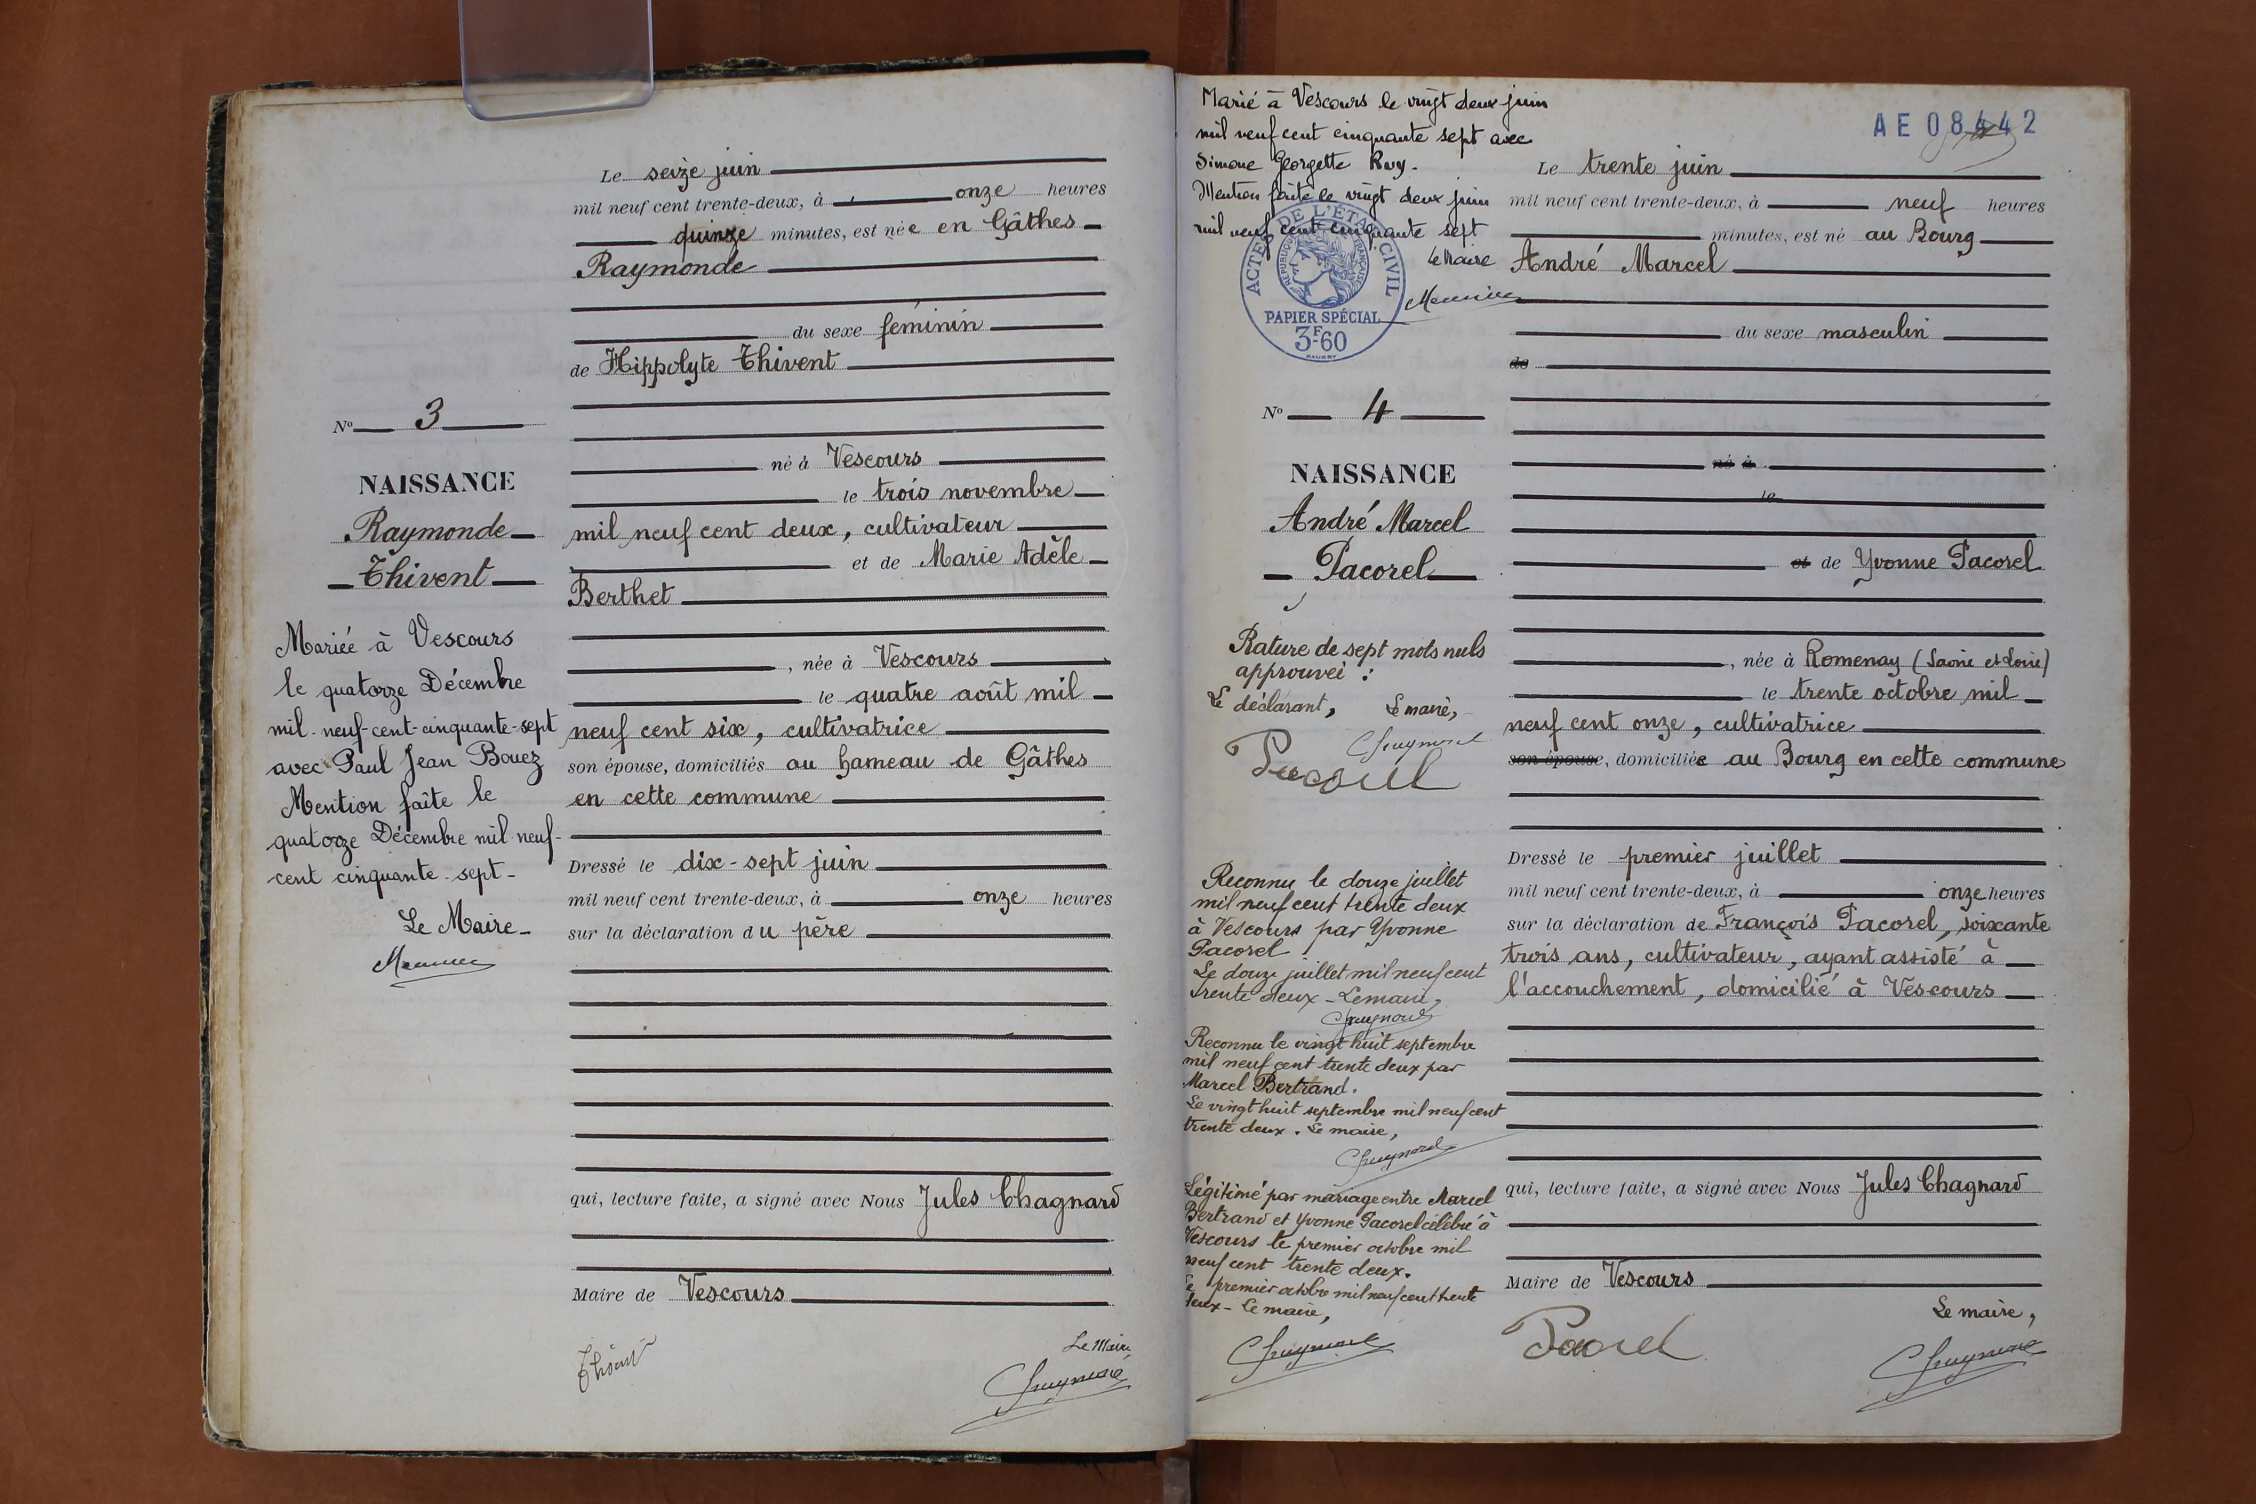 Le seize juin
mil neuf cent trente-deux, à onze heures
quinze minutes, est née en Gâthes
Raymonde
du sexe féminin
de Hippolyte Thivent
né à Vescours
le trois novembre
mil neuf cent deux, cultivateur
et de Marie Adèle
Berthet
, née à Vescours
le quatre août mil
neuf cent six, cultivatrice
son épouse, domiciliés au hameau de Gâthes
en cette commune
Dressé le dix-sept juin
mil neuf cent trente-deux, à onze heures
sur la déclaration du père
qui, lecture faite, a signé avec Nous Jules Chagnard
Maire de Vescours
Le Maire,
Thivent
No 3
NAISSANCE
Raymonde
Thivent
Mariée à Vescours
le quatorze Décembre
mil-neuf-cent-cinquante-sept
avec Paul Jean Bouez
Mention faîte le
quatorze Décembre mil neuf-
cent cinquante-sept-
Le Maire-
Marié à Vescours le vingt deux juin
mil neuf cent cinquante sept avec
Simone Georgette Ruy.
Mention faite le vingt deux juin
mil neuf cent cinquante sept
Le Maire
ACTES DE L'ÉTAT CIVIL
RÉPUBLIQUE FRANÇAISE
PAPIER SPÉCIAL
3F60
No 4
NAISSANCE
André Marcel
Pacorel
Rature de sept mots nuls
approuvée :
Le déclarant, Le maire,
Pacorel
Reconnu le douze juillet
mil neuf cent trente deux
à Vescours par Yvonne
Pacorel.
Le douze juillet mil neuf cent
trente deux - Le maire,
Reconnu le vingt huit septembre
mil neuf cent trente deux par
Marcel Bertrand.
Le vingt huit septembre mil neuf cent
trente deux. Le maire,
Légitimé par mariage entre Marcel
Bertrand et Yvonne Pacorel célébré à
Vescours le premier octobre mil
neuf cent trente deux.
Le premier octobre mil neuf cent trente
deux - Le maire,
AE 08442
Le trente juin
mil neuf cent trente-deux, à neuf heures
minutes, est né au Bourg
André Marcel
du sexe masculin
de
né à
le
et de Yvonne Pacorel
, née à Romenay (Saône et Loire)
le trente octobre mil
neuf cent onze, cultivatrice
son épouse, domiciliée au Bourg en cette commune
Dressé le premier juillet
mil neuf cent trente-deux, à onze heures
sur la déclaration de François Pacorel, soixante
trois ans, cultivateur, ayant assisté à
l'accouchement, domicilié à Vescours
qui, lecture faite, a signé avec Nous Jules Chagnard
Maire de Vescours
Le maire,
Pacorel